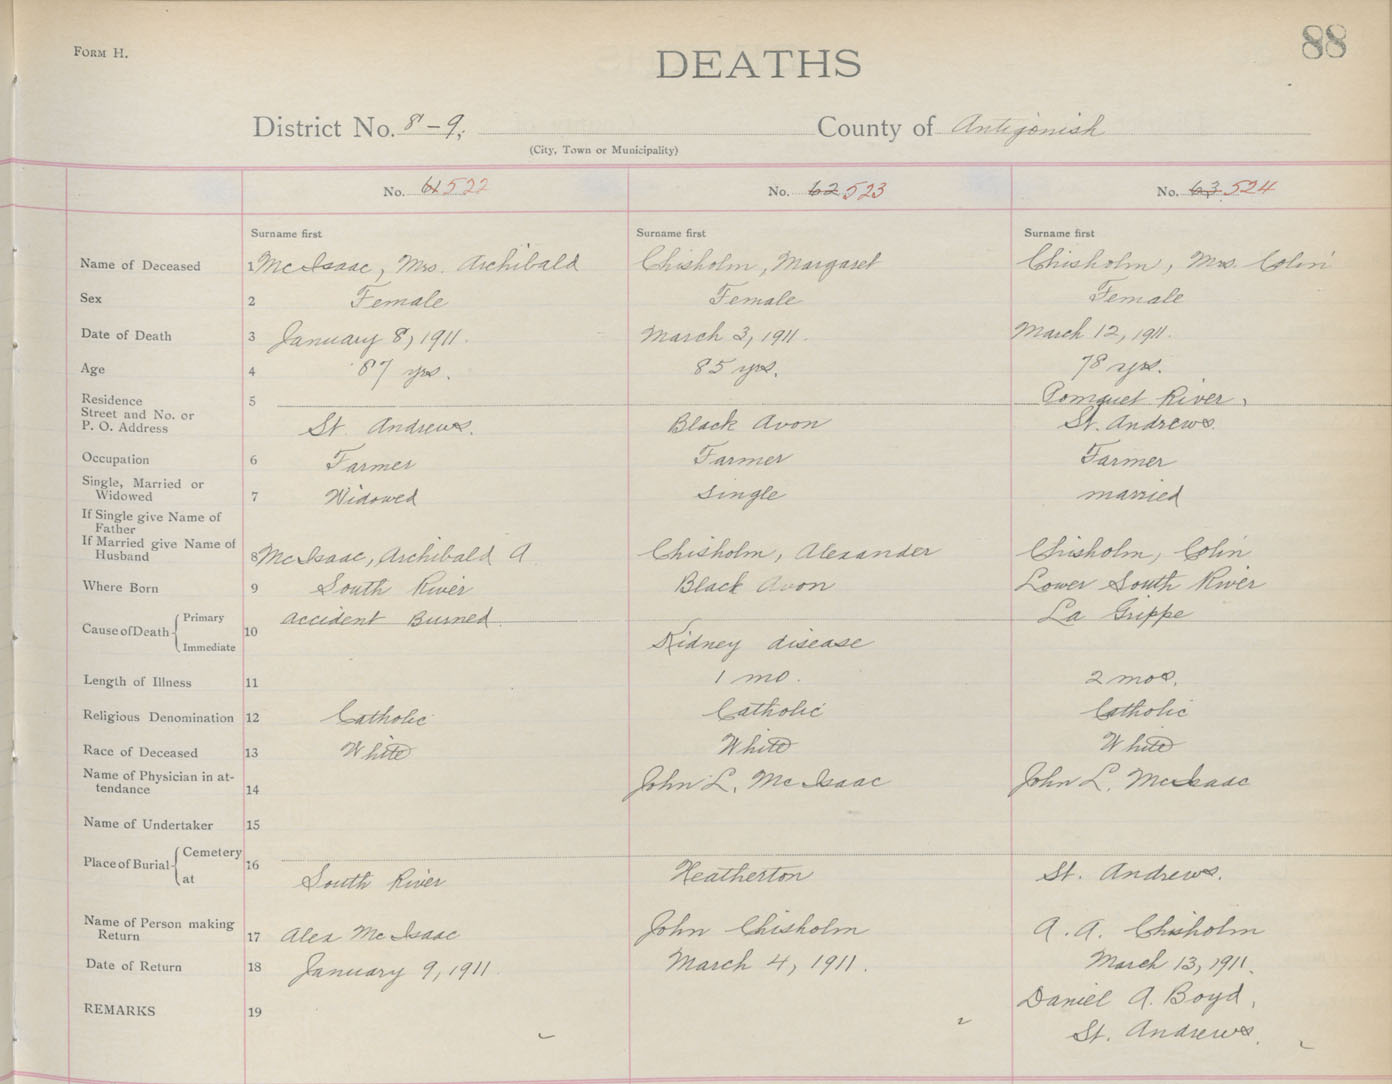 88
Form H.
DEATHS
District No. 8-9, County of Antigonish
(City, Town or Municipality)
No. 61 522 No. 62 523 No. 63 524
Surname first Surname first Surname first
Name of Deceased 1 McIsaac, Mrs. Archibald Chisholm, Margaret Chisholm, Mrs. Colin
Sex 2 Female Female Female
Date of Death 3 January 8, 1911. March 3, 1911. March 12, 1911.
Age 4 87 yrs. 85 yrs. 78 yrs.
Residence 5 Pomquet River,
Street and No. or
P. O. Address St. Andrews. Black Avon St. Andrews.
Occupation 6 Farmer Farmer Farmer
Single, Married or
Widowed 7 Widowed Single married
If Single give Name of
Father
If Married give Name of
Husband 8 McIsaac, Archibald A Chisholm, Alexander Chisholm, Colin
Where Born 9 South River Black Avon Lower South River
Cause of Death Primary 10 accident Burned La Grippe
Immediate Kidney disease
Length of Illness 11 1 mo. 2 mos.
Religious Denomination 12 Catholic Catholic Catholic
Race of Deceased 13 White White White
Name of Physician in at-
tendance 14 John L. McIsaac John L. McIsaac
Name of Undertaker 15
Place of Burial Cemetery 16
at South River Heatherton St. Andrews.
Name of Person making
Return 17 Alex McIsaac John Chisholm A. A. Chisholm
Date of Return 18 January 9, 1911 March 4, 1911. March 13, 1911.
REMARKS 19 Daniel A. Boyd,
St. Andrews.